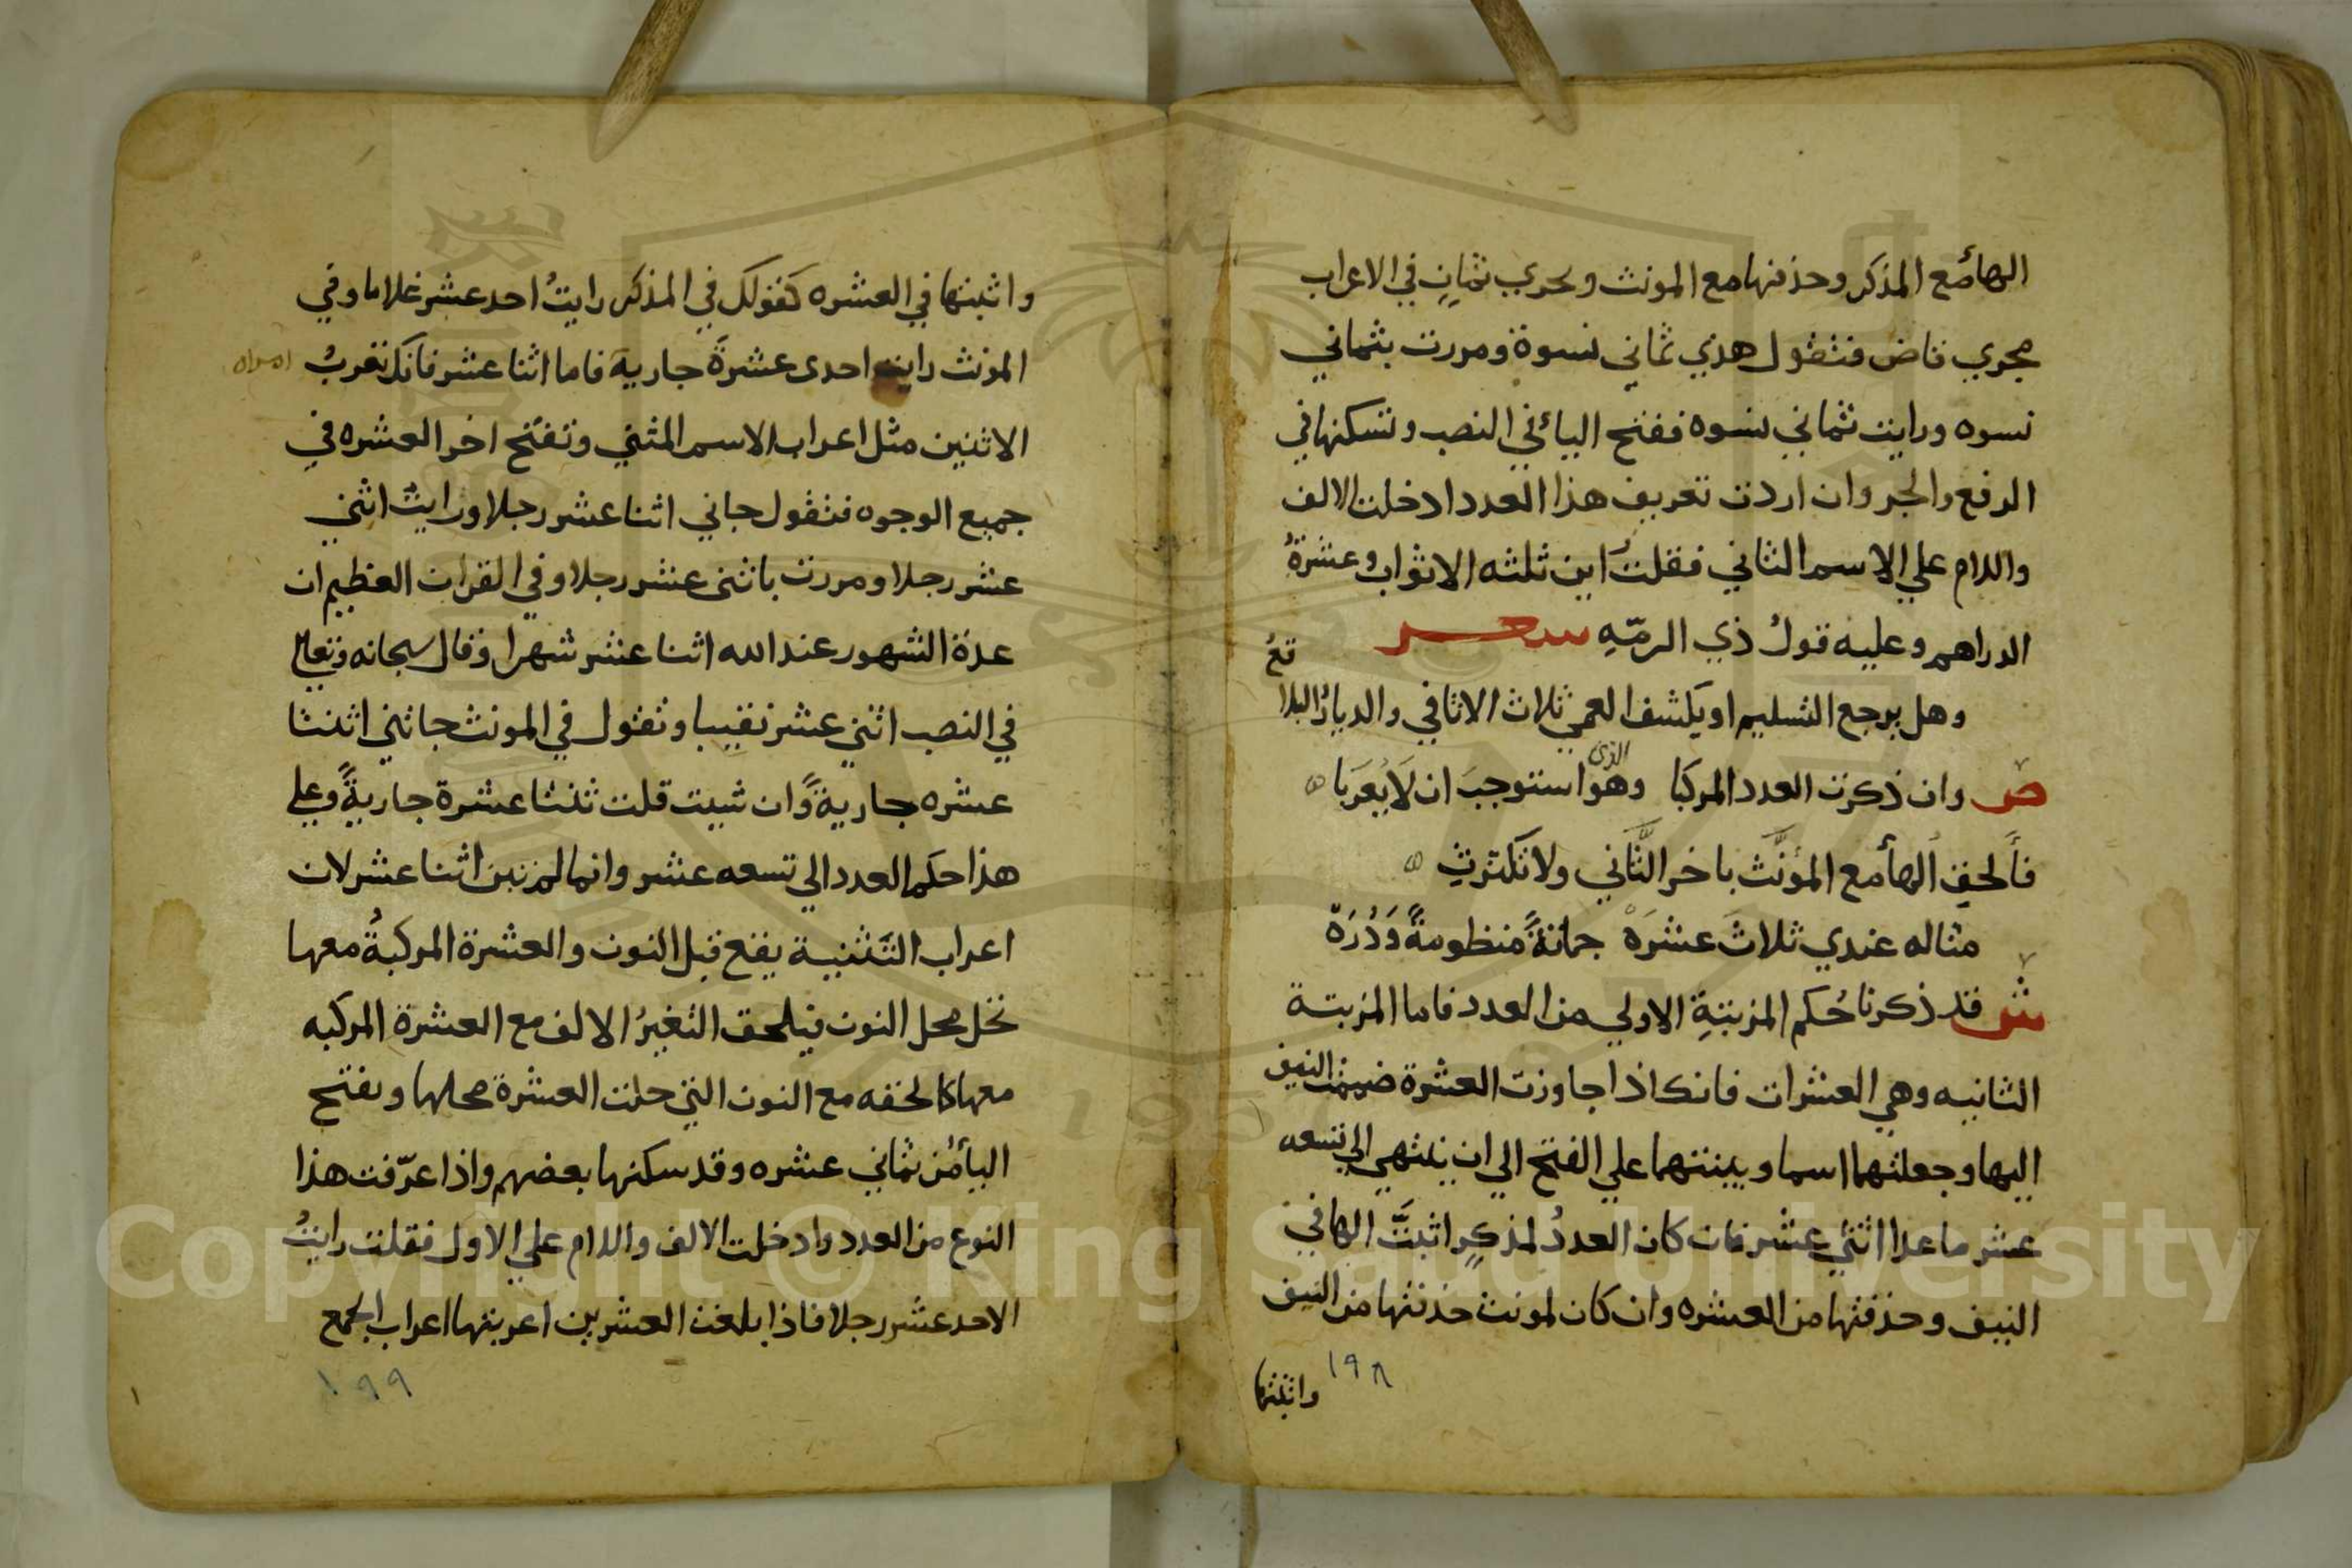 الهأ مع المذكر وحذفنها مع المونث وبحري ثمانٍ في الاعراب
مجري قاض فتقول هذي ثماني نسوة ومررت بثماني
نسوه ورايت ثماني نسوه ففتح اليأ في النصب وتسكنها في
الرفع والجر وان اردت تعريف هذا العدد ادخلت الالف
واللام علي الاسم الثاني فقلتَ اين ثلثه الاثواب وعشرةُ
الدراهم وعليه قولُ ذي الرمّهِ شعر
وهل يرجع التسليم او يكشف العمي ثلاث الاثافي والديارُ البلا
قع
ص وان ذكرت العدد المركبا وهو الذي استوجبَ ان لَا يُعرَبا
فأَلحقِ الهأَ مع المؤنَّث باخر الثَّاني ولا تكترثِ
مثاله عندي ثلاثَ عشرَهْ جمانةً منظومةً وَدُرَهْ
ش قد ذكرنا حُكم المرتبَةِ الاولي من العدد فاما المرتبة
الثانيه وهي العشرات فانك اذا جاوزت العشرة ضممت النيف
اليها وجعلتهما اسما وبينتهما علي الفتح الي ان ينتهي الي تسعه
عشر ما عدا اثني عشر فان كان العددُ لمذكرٍ اثبتَّ الها في
النيف وحذفتها من العشره وان كان لمونث حذفتها من النيف
١٩٨
واثبتها
واثبتها في العشره كقولك في المذكر رايتُ احد عشر غلاما وفي
المونث رايت احدى عشرةَ جاريةَ فاما اثنا عشر فانك تعربُ
الاثنين مثل اعراب الاسم المثني وتفتح اخر العشره في
جميع الوجوه فتقول جاني اثنا عشر رجلا ورايتُ اثني
عشر رجلا ومررت باثنى عشر رجلا وفي القران العظيم ان
عدة الشهور عند الله اثنا عشر شهرا وقال سبحانه وتعالي
في النصب اثني عشر نقيبا وتقول في المونث جاتني اثنتا
عشره جاريةً وان شيت قلت ثنتا عشرة جاريةً وعلي
هذا حكم العدد الي تسعه عشر وانما لم تبن اثنا عشر لان
اعراب التثنية يقع قبل النون والعشرة المركبةُ معها
تحل محل النون فيلحق التغيرُ الالف مع العشرة المركبه
معها كما لحقه مع النون التي حلت العشرة محلها وبفتح
اليأ من ثماني عشره وقد سكنها بعضهم واذا عرّفت هذا
النوع من العدد ادخلت الالف واللام علي الاول فقلت رايتُ
الاحد عشر رجلا فاذا بلغت العشرين اعربتها اعراب الجمع
١٩٩
Copyright © King Saud University
1957